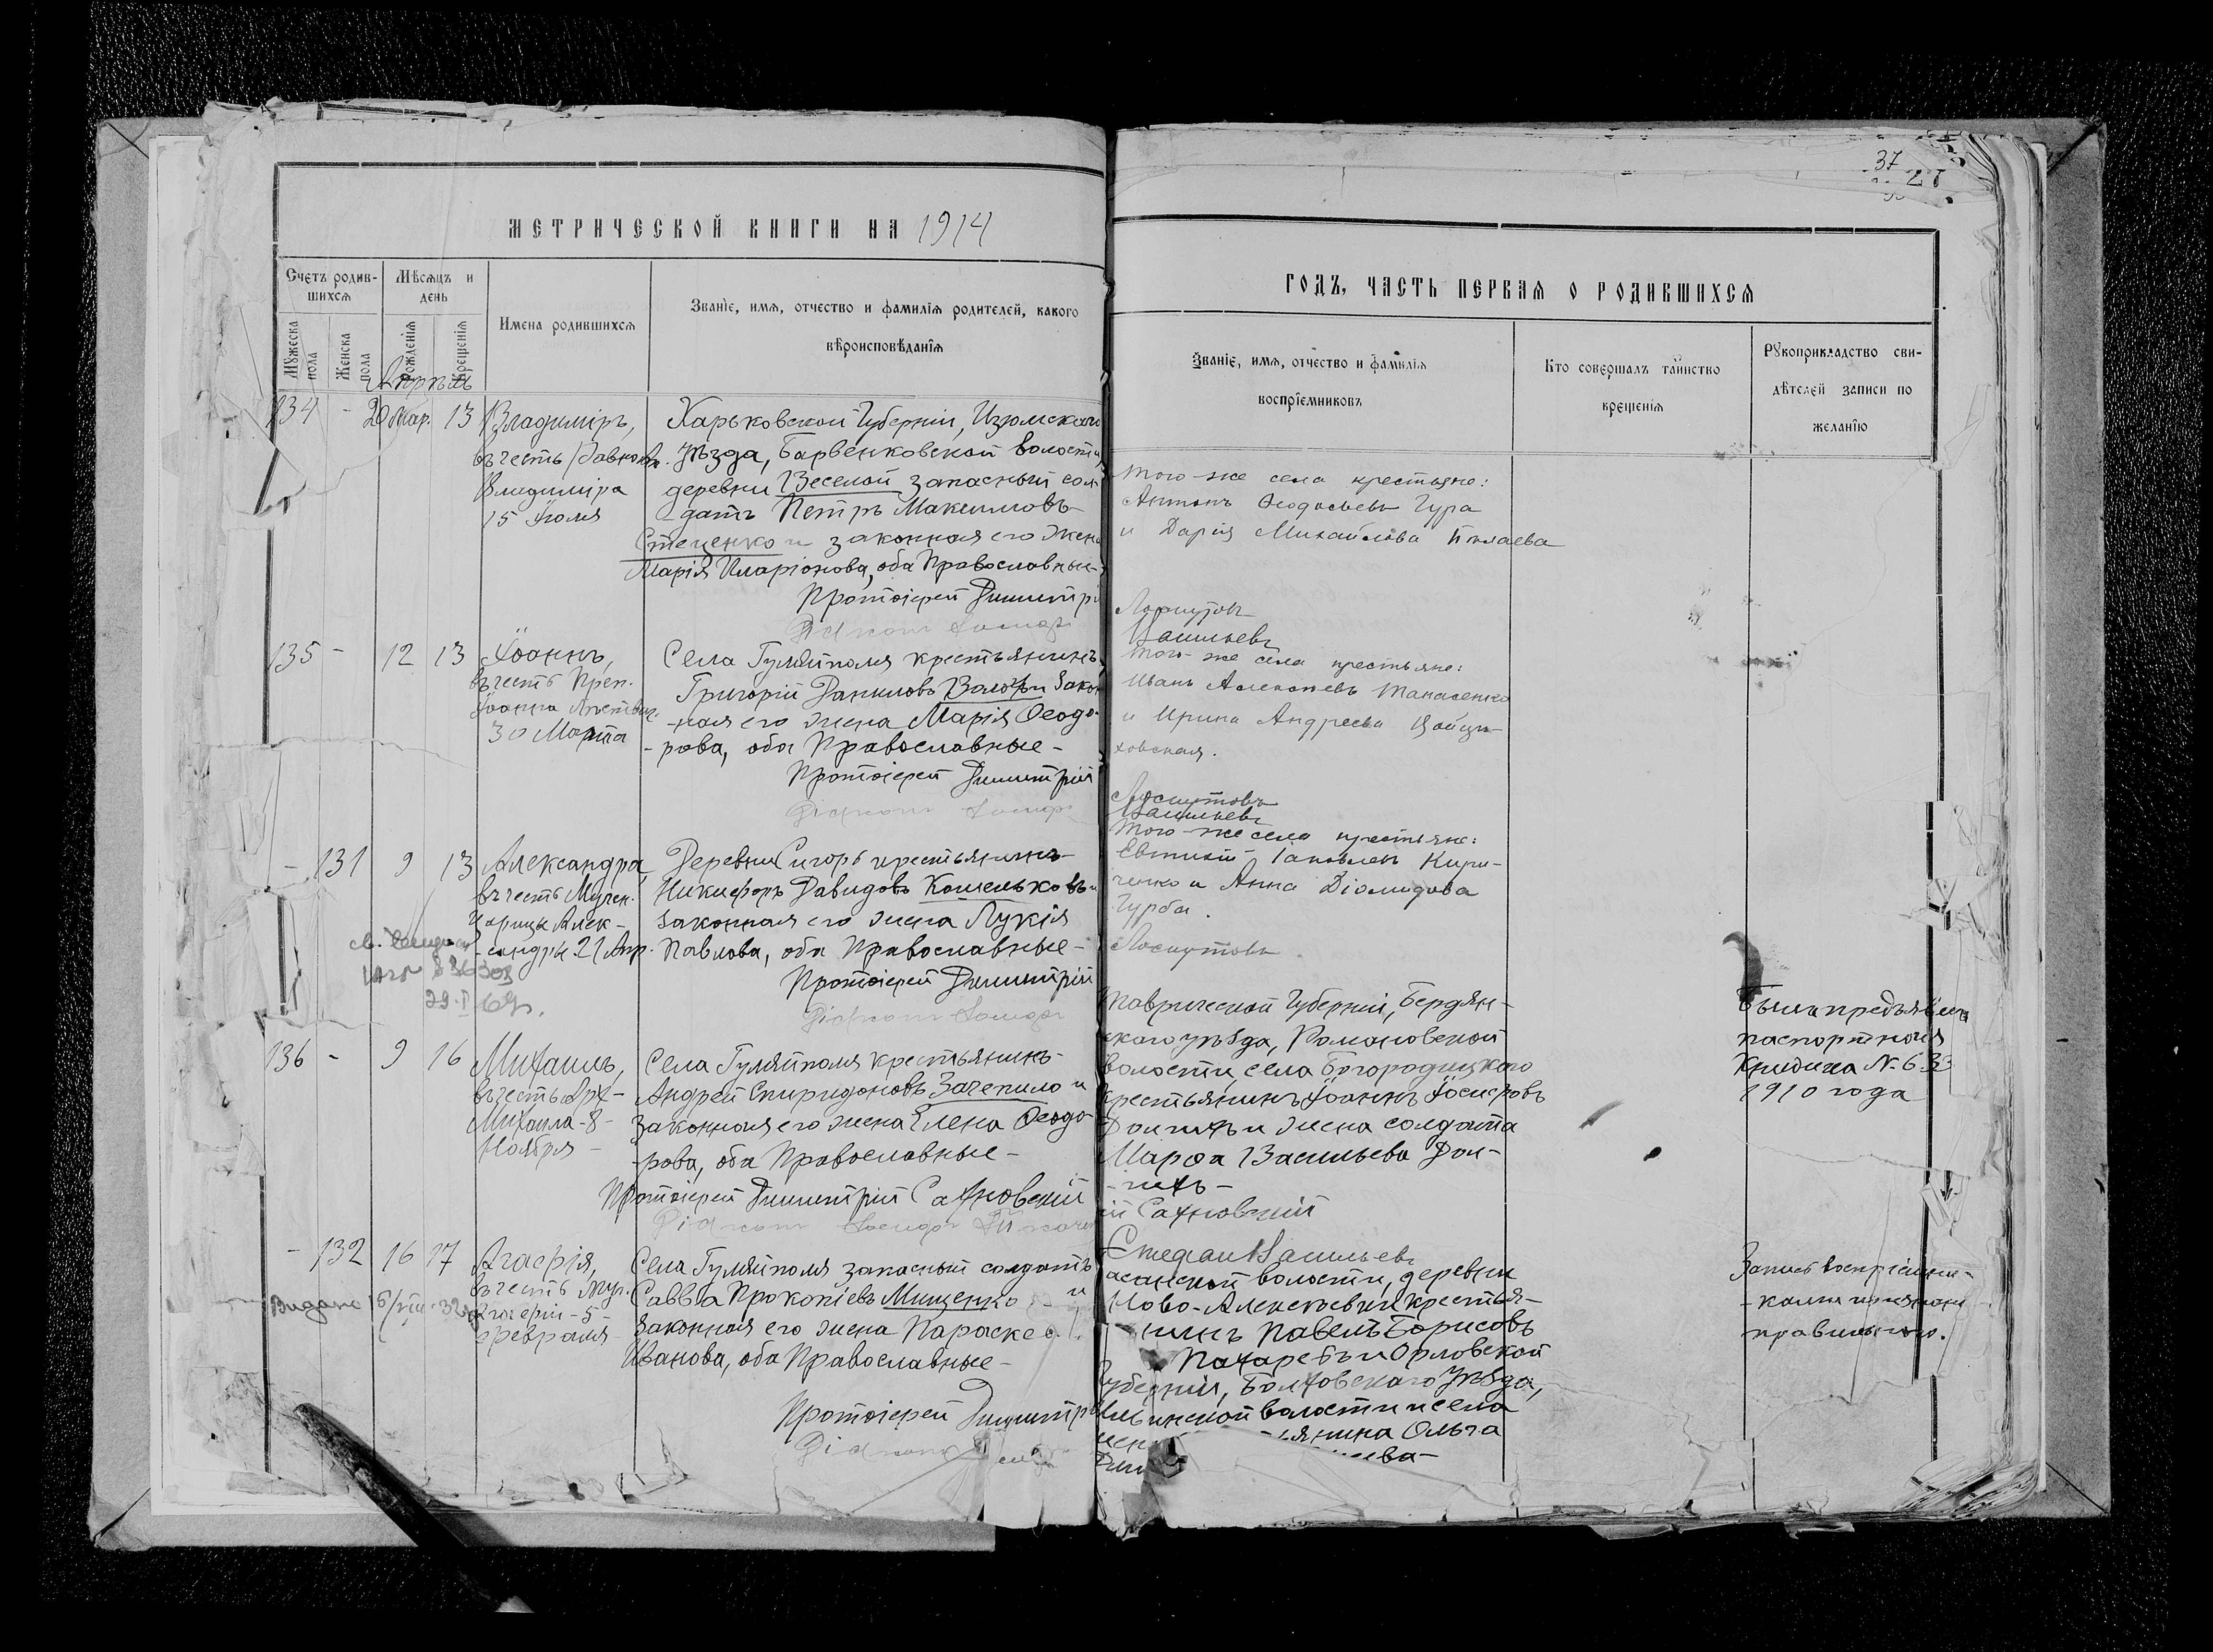 МЕТРИЧЕСКОЙ КНИГИ НА 1914
Счетъ родив-
шихся
Мѣсяцъ и
день
Мужеска
пола
Женска
пола
Рожденія
Крещенія
Имена родившихся
Званіе, имя, отчество и фамилія родителей, какого
вѣроисповѣданія
Апрѣль
134 - 20 Мар. 13 Владиміръ,
въ честь Равноап.
Владиміра
15 Іюля
Харьковской Губерніи, Изюмскаго
Уѣзда, Барвенковской волости,
деревни Веселой запасный сол-
датъ Петръ Максимовъ
Стеценко и законная его жена
Марія Иларіонова, оба Православные-
Протоіерей Димитрі
Діаконъ
135 - 12 13 Іоаннъ,
въ честь Преп.
Іоанна Лѣствич.
30 Марта
Села Гуляйполя крестьянинъ
Григорій Даниловъ Волохъ и закон
-ная его жена Марія Ѳеодо-
-рова, оба Православные-
Протоіерей Димитрій
Діаконъ
- 131 9 13 Александра
въ честь Мучен.
Царицы Алек-
-сандры 21 Апр.
Деревни Сигоръ крестьянинъ
Никифоръ Давидовъ Кошельковъ и
законная его жена Лукія
Павлова, оба Православные-
Протоіерей Димитрій
Діаконъ
136 - 9 16 Михаилъ,
въ честь Арх-
Михаила-8-
Ноября-
Села Гуляйполя крестьянинъ
Андрей Спиридоновъ Зачепило и
законная его жена Елена Ѳеодо-
-рова, оба Православные-
Протоіерей Димитрій Сахновскій
Діаконъ
- 132 16 17 Агафія,
въ честь Муч.
Агафіи-5-
Февраля
Видано
Села Гуляйполя запасный солдатъ
Савва Прокопіевъ Мищенко и
законная его жена Параскев
Иванова, оба Православные-
Протоіерей Димитрі
Діаконъ
37
ГОДЪ, ЧАСТЬ ПЕРВАЯ О РОДИВШИХСЯ
Званіе, имя, отчество и фамилія
воспріемниковъ
Кто совершалъ таинство
крещенія
Рукоприкладство сви-
дѣтелей записи по
желанію
Того-же села крестьяне:
Антонъ Ѳеодосьевъ Гура
и Дарія Михайлова
Лоскутовъ
Васильевъ
Того-же села крестьяне:
Иванъ Алексѣевъ Танасенко
и Ирина Андреева Войцы-
ховская.
Лоскутовъ
Васильевъ
Того-же села крестьяне:
Евтихій Іаковлевъ Кири-
ченко и Анна Діомидова
Гурба.
Лоскутовъ
Таврической Губерніи, Бердян-
скаго уѣзда, Романовской
волости, села Богородицкаго
крестьянинъ Іоаннъ Іосифовъ
и жена солдата
Марѳа Васильева
ій Сахновскій
Стефан Васильевъ
волости, деревни
Ново-Алексѣевки крестья-
-нинъ Павелъ Борисовъ
и Орловской
Губерніи, Болховскаго Уѣзда,
волости и села
Ольга
Была предъявлена
паспортная
Книжка № 633
1910 года
Запись воспріемни-
-ками
правильно.